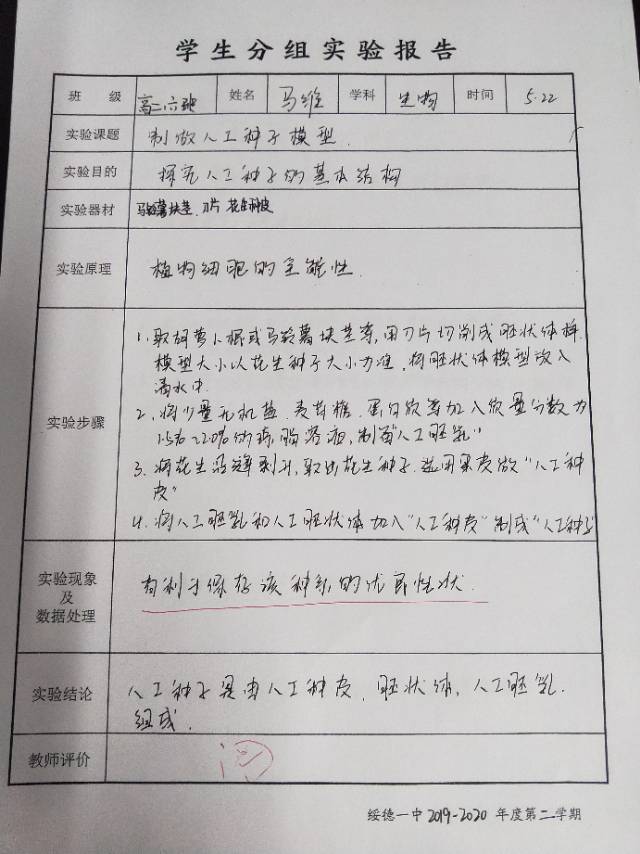 学生分组实验报告
班 级 高二六班 姓名 马维 学科 生物 时间 5.22
实验课题 制做人工种子模型.
实验目的 探究人工种子的基本结构
实验器材 马铃薯块茎、刀片 花生种皮
实验原理 植物细胞的全能性.
实验步骤
1. 取胡萝卜根或马铃薯块茎等,用刀片切削成胚状体模
模型大小以花生种子大小为准,将胚状体模型放入
清水中.
2. 将少量无机盐、麦芽糖、蛋白饮等加入质量分数为
1.5%~2.0%的琼脂溶液,制备"人工胚乳"
3. 将花生沿缝剥开,取出花生种子.选用果皮做"人工种
皮"
4. 将人工胚乳和人工胚状体加入"人工种皮"制成"人工种子
实验现象
及
数据处理
有利于保存该种系的优良性状.
实验结论
人工种子是由人工种皮、胚状体、人工胚乳.
组成.
教师评价
绥德一中 2019-2020 年度第二学期